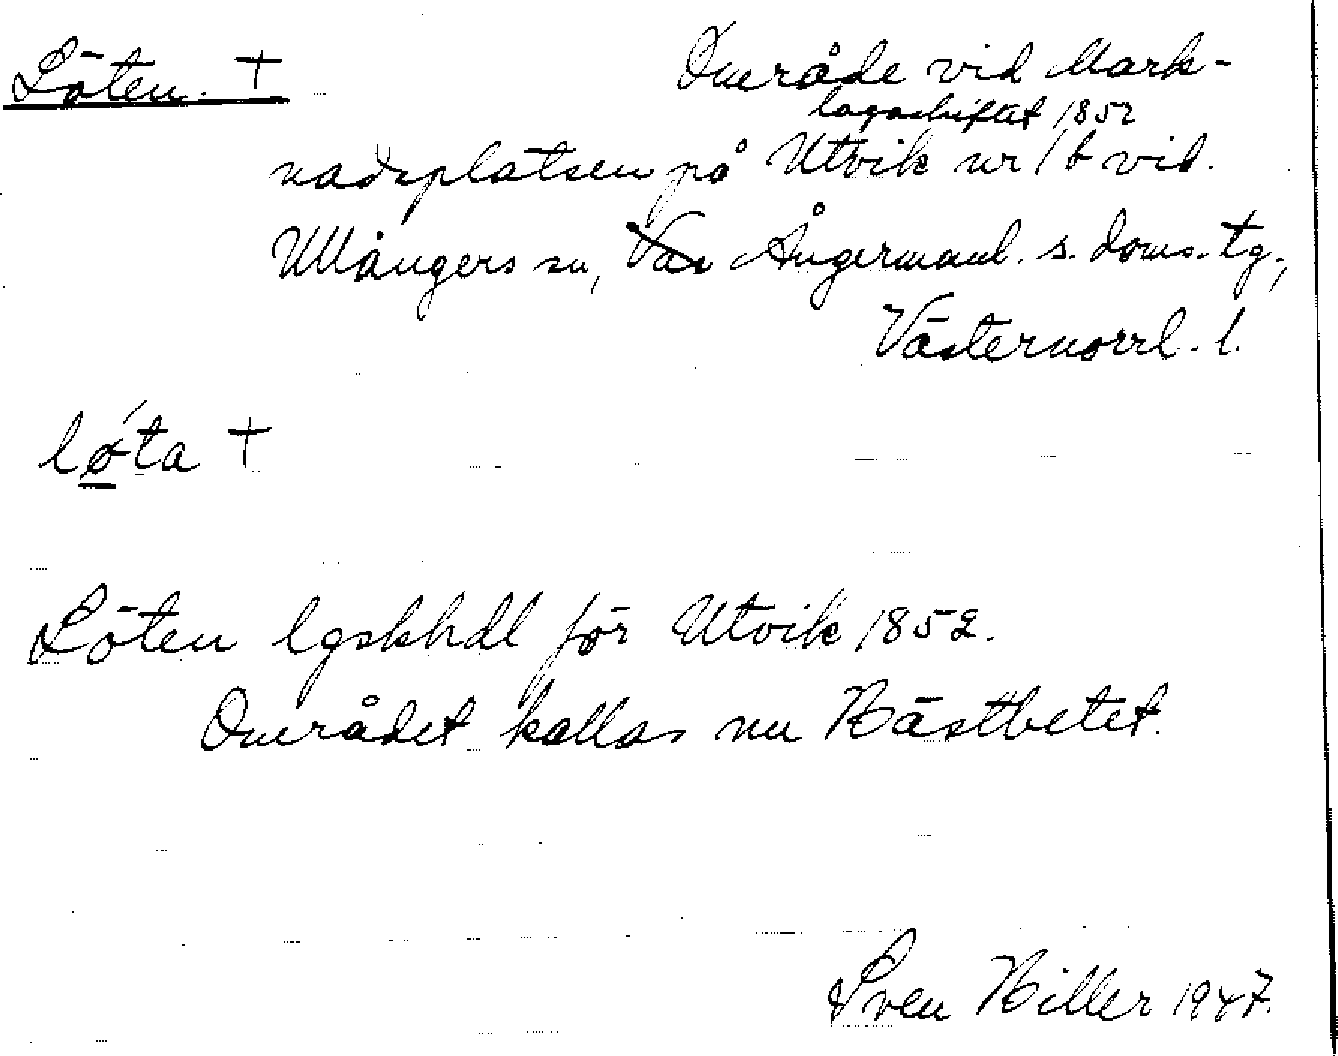 Löten. †
Område vid Mark-
lagaskiftet 1852
nadsplatsen på Utvik nr 1 b vid.
Ullångers sn, Väs Ångermanl. s. doms. tg.,
Västernorrl. l.
lǿta †
Löten lgskhdl för Utvik 1852.
Området kallas nu Hästbetet.
Sven Hiller 1947.